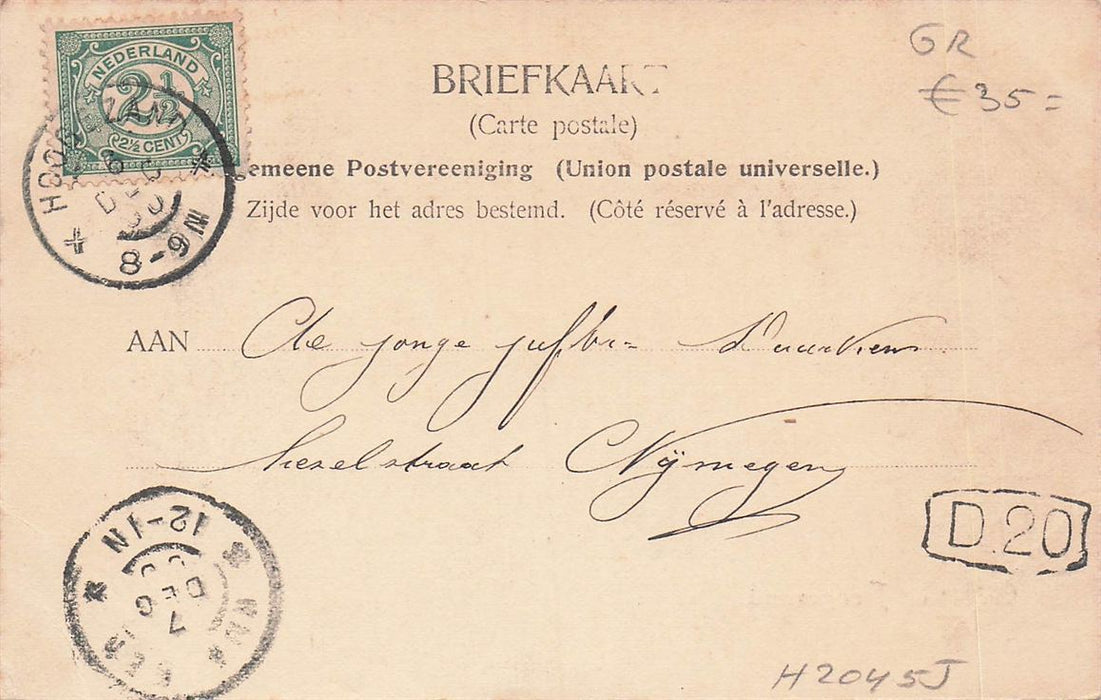 NEDERLAND
2½
2½ CENT
8 DEC
8-9 N
GR
€ 35=
BRIEFKAART
(Carte postale)
gemeene Postvereeniging (Union postale universelle.)
Zijde voor het adres bestemd. (Côté réservé à l'adresse.)
AAN De jonge juffr=
Hezelstraat Nijmegen
D.20
12-1N
7 DEC
H2045J